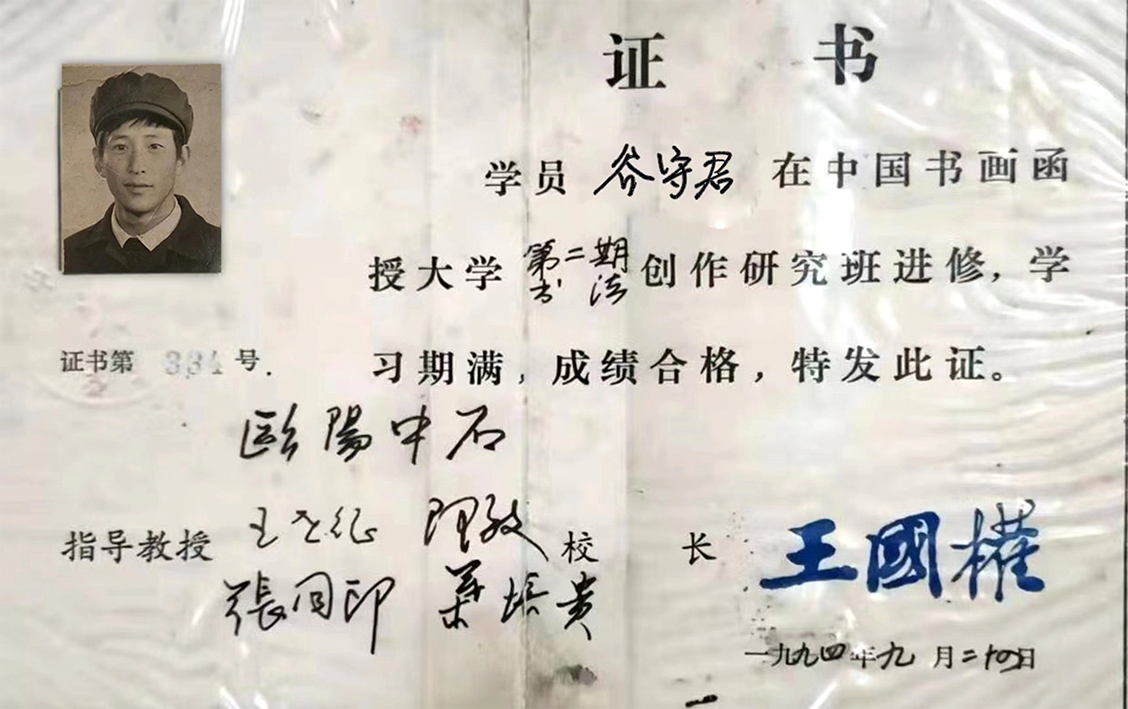 证 书
学员 谷守君 在中国书画函
授大学 第二期书法 创作研究班进修，学
习期满，成绩合格，特发此证。
证书第 334 号
歐陽中石
指导教授
張同印
校 长 王國權
一九九四年九月二十四日